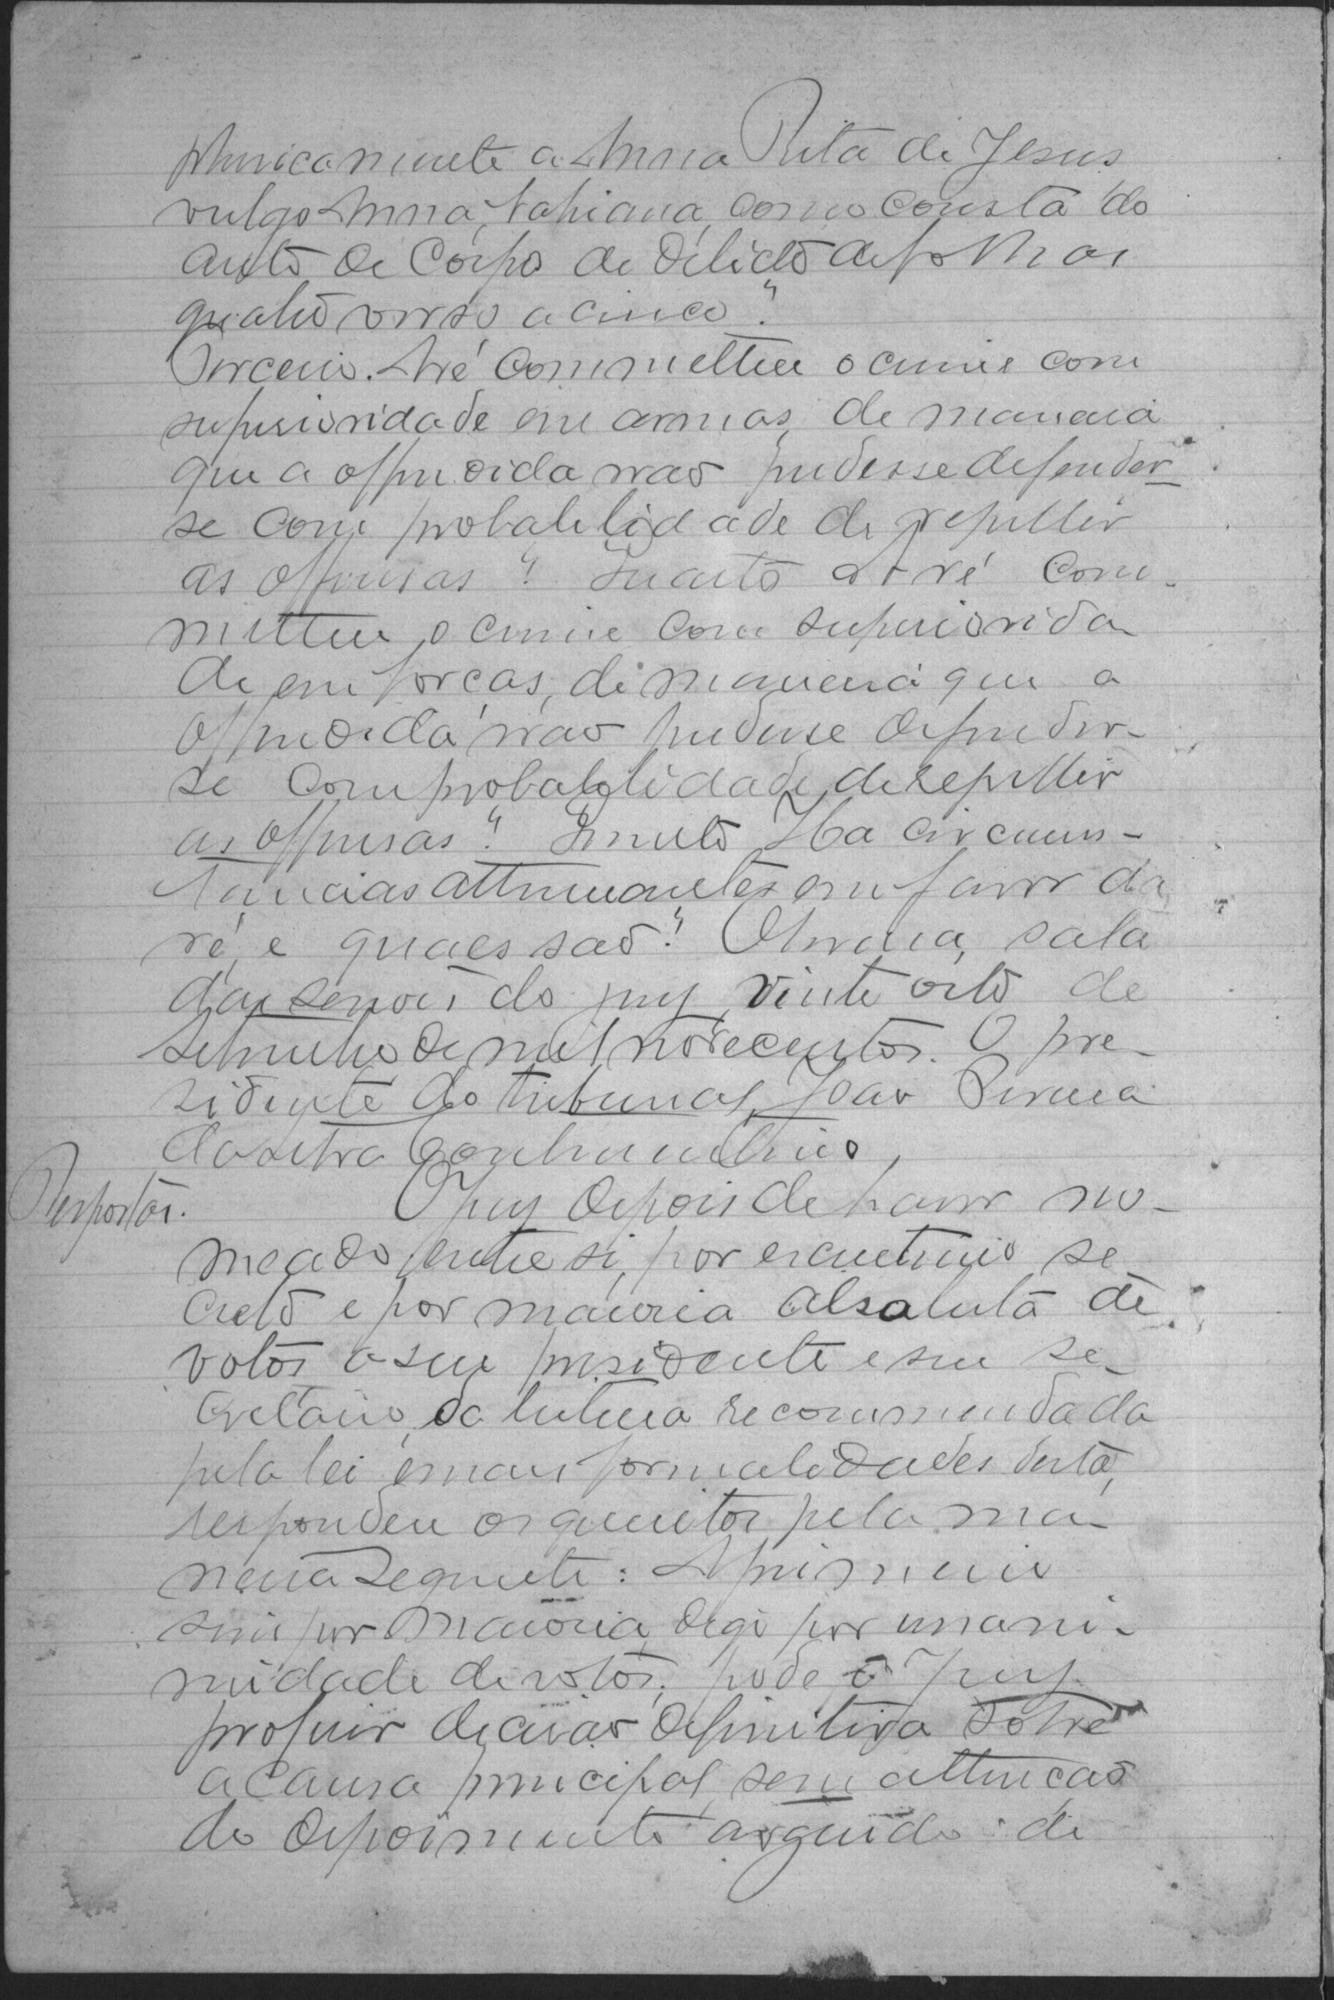 phisicamente a Anna Rita de Jesus
vulgo Anna Bahiana, como consta do
auto de Corpo de delicto de folhas
quatro verso a cinco?"
Terceiro. A ré commetteu o crime com
superioridade em armas, de maneira
que a offendida não pudesse defender-
se com probabilidade de repellir
as offensas? Quarto A ré com-
metteu o crime com superiorida
de em forças, de maneira que a
offendida não pudesse defender-
se com probabilidade de repellir
as offensas? Quinto Ha circums-
tancias attenuantes em favor da
ré, e quaes são? Oliveira, sala
das sessões do jury, vinte oito de
Setembro de mil novecentos. O pre-
sidente do tribunal, João Pereira
da Silva
Respostas. O jury depois de haver no-
meado, entre si, por escrutinio se
creto e por maioria absoluta de
votos o seu presidente e seu se-
cretario, da leitura recommendada
pela lei e mais formalidades desta,
respondeu os quesitos pela ma-
neira seguinte: Ao primeiro
sim por maioria, digo por unani-
midade de votos; pode o Jury
proferir decisão definitiva sobre
a causa principal, sem attenção
do depoimento arguido de